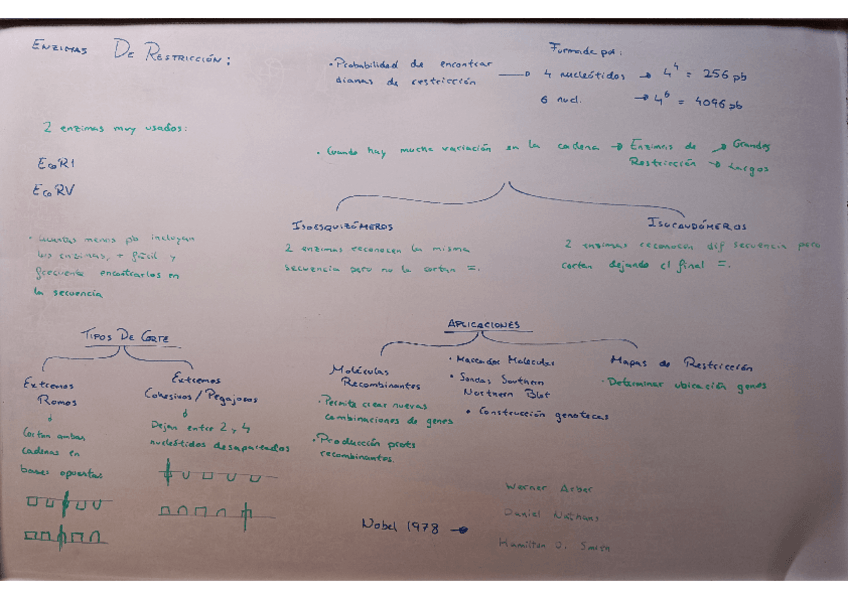 ENZIMAS DE RESTRICCIÓN:
• Probabilidad de encontrar
dianas de restricción
Formada por:
4 nucleótidos → 4⁴ = 256 pb
6 nucl. → 4⁶ = 4096 pb
2 enzimas muy usados:
EcoRI
EcoRV
• Cuando hay mucha variación en la cadena → Enzimas de Restricción → Grandes
→ Largos
• Cuantas menos pb incluyan
las enzimas, + fácil y
frecuente encontrarlos en
la secuencia
ISOESQUIZÓMEROS
2 enzimas reconocen la misma
secuencia pero no la cortan =.
ISOCAUDÓMEROS
2 enzimas reconocen dif secuencia pero
cortan dejando el final =.
TIPOS DE CORTE
Extremos
Romos
Cortan ambas
cadenas en
bases opuestas
Extremos
Cohesivos / Pegajosos
Dejan entre 2 y 4
nucleótidos desapareados
APLICACIONES
Moléculas
Recombinantes
• Permite crear nuevas
combinaciones de genes
• Producción prots
recombinantes.
• Marcador Molecular
• Sondas Southern
Northern Blot
• Construcción genotecas
Mapas de Restricción
• Determinar ubicación genes
Nobel 1978 →
Werner Arber
Daniel Nathans
Hamilton O. Smith